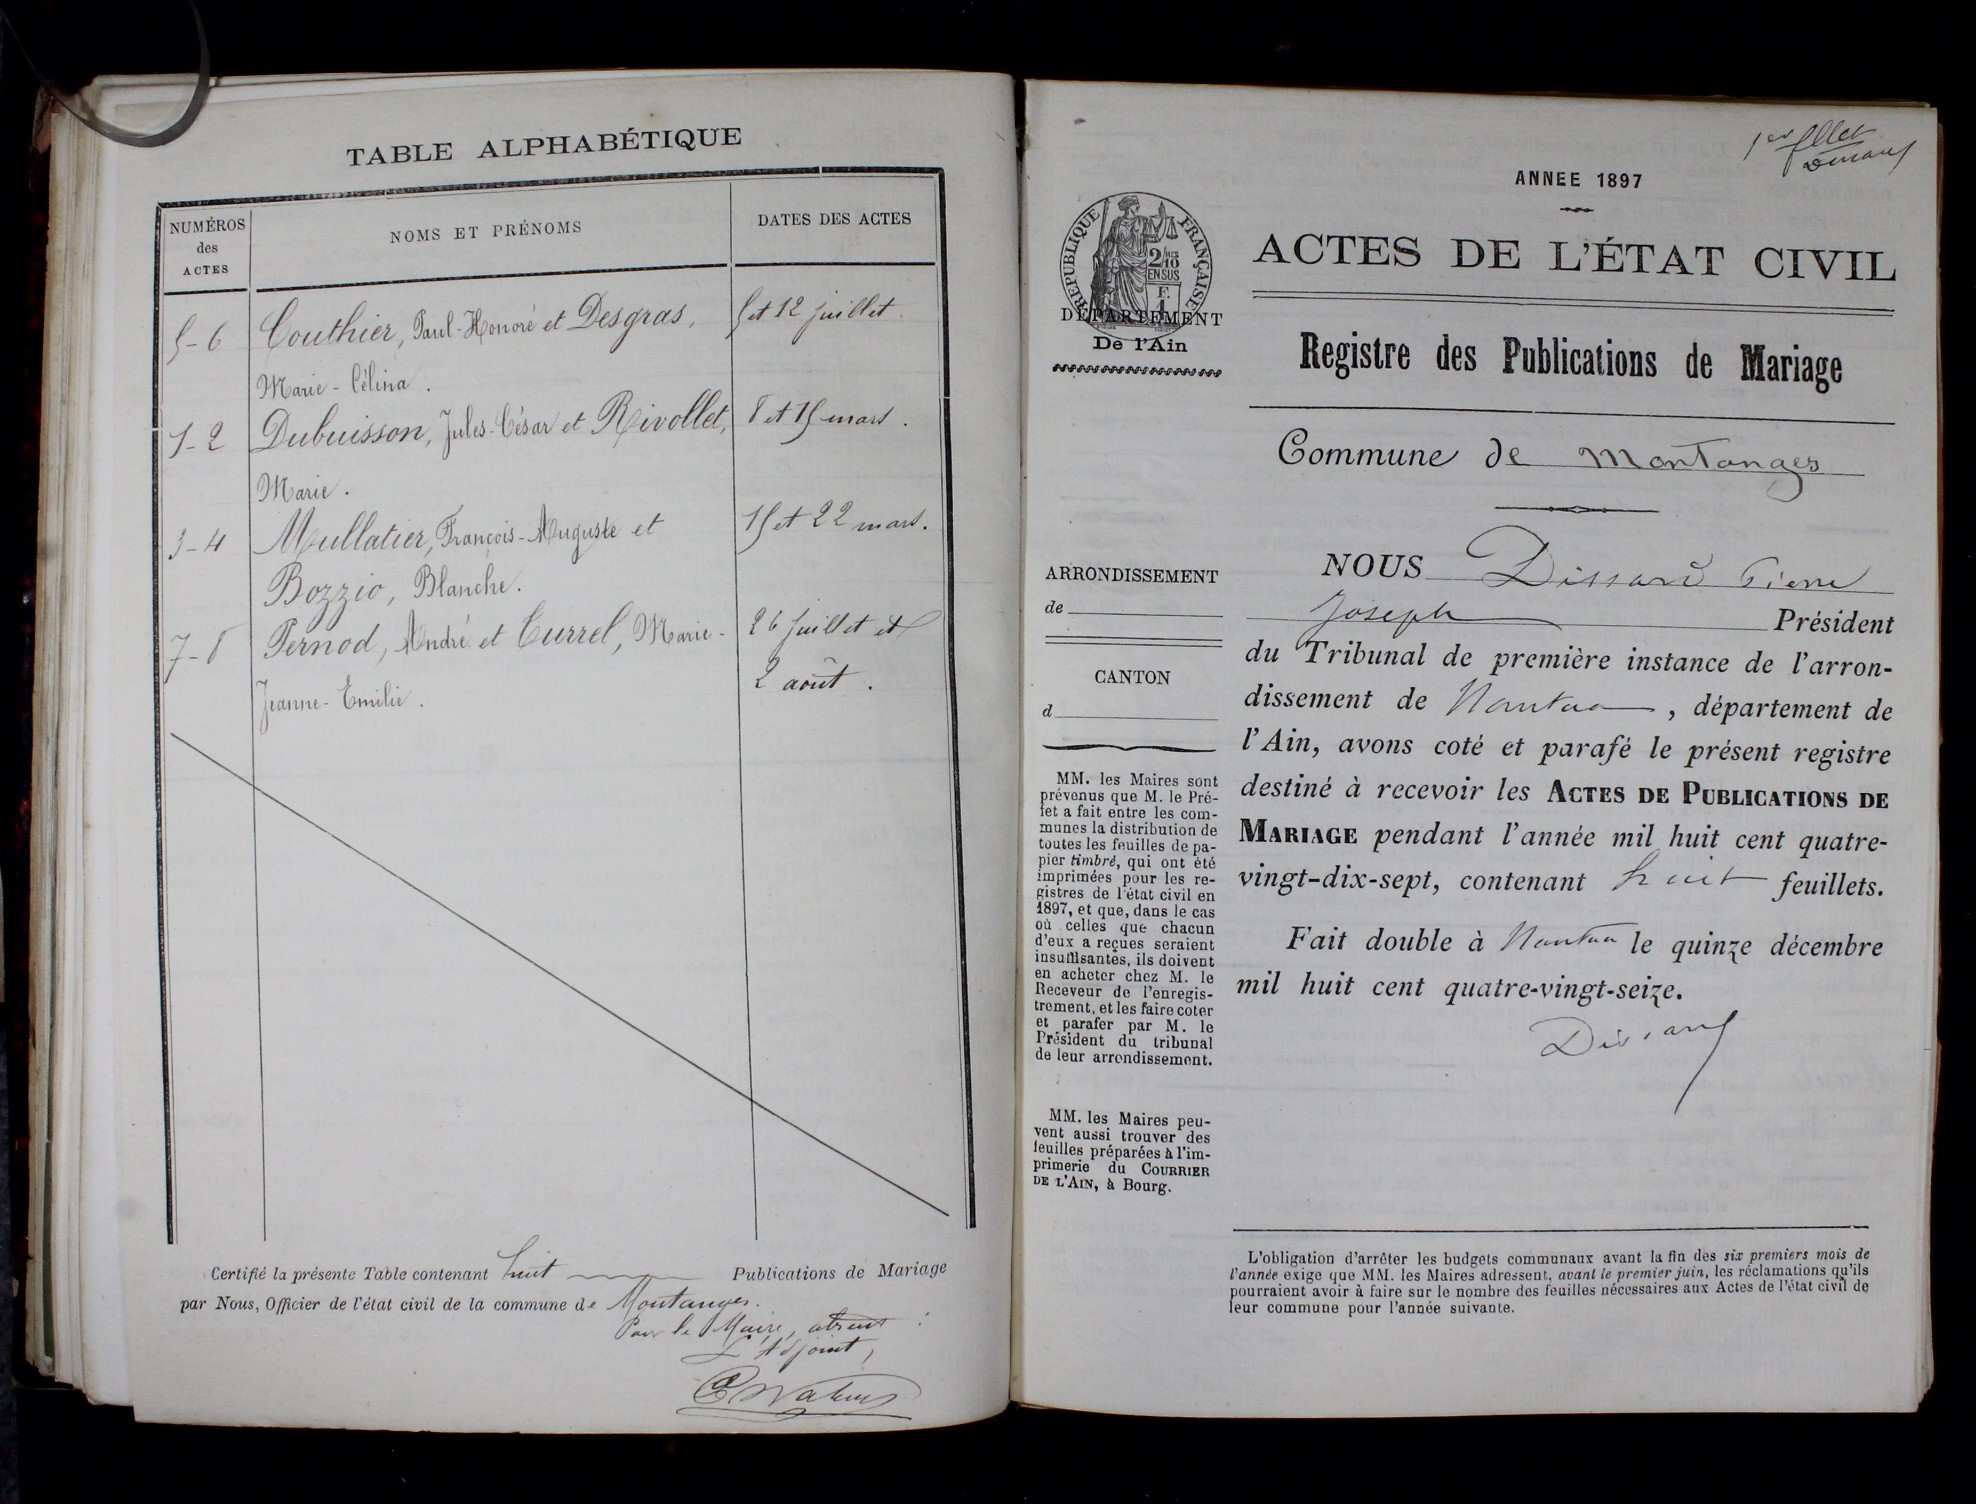 TABLE ALPHABÉTIQUE
NUMÉROS
des
ACTES
NOMS ET PRÉNOMS
DATES DES ACTES
5-6 Couthier, Paul-Honoré et Desgras, 5 et 12 juillet.
Marie-Célina.
1-2 Dubuisson, Jules-César et Rivollet, 8 et 15 mars.
Marie.
3-4 Mullatier, François-Auguste et 15 et 22 mars.
Bozzio, Blanche.
7-8 Pernod, André et Currel, Marie- 26 juillet et
Jeanne-Emilie. 2 août.
Certifié la présente Table contenant huit Publications de Mariage
par Nous, Officier de l'état civil de la commune de Montanges.
Pour le Maire, absent :
L'Adjoint,
1er fllet
Dissard
ANNEE 1897
RÉPUBLIQUE FRANÇAISE
2/10 EN SUS
DÉPARTEMENT
De l'Ain
ACTES DE L'ÉTAT CIVIL
Registre des Publications de Mariage
Commune de Montanges
ARRONDISSEMENT
de
CANTON
d
MM. les Maires sont
prévenus que M. le Pré-
fet a fait entre les com-
munes la distribution de
toutes les feuilles de pa-
pier timbré, qui ont été
imprimées pour les re-
gistres de l'état civil en
1897, et que, dans le cas
où celles que chacun
d'eux a reçues seraient
insuffisantes, ils doivent
en acheter chez M. le
Receveur de l'enregis-
trement, et les faire coter
et parafer par M. le
Président du tribunal
de leur arrondissement.
MM. les Maires peu-
vent aussi trouver des
feuilles préparées à l'im-
primerie du COURRIER
DE L'AIN, à Bourg.
NOUS Dissard Pierre
Joseph Président
du Tribunal de première instance de l'arron-
dissement de Nantua, département de
l'Ain, avons coté et parafé le présent registre
destiné à recevoir les ACTES DE PUBLICATIONS DE
MARIAGE pendant l'année mil huit cent quatre-
vingt-dix-sept, contenant huit feuillets.
Fait double à Nantua le quinze décembre
mil huit cent quatre-vingt-seize.
Dissard
L'obligation d'arrêter les budgets communaux avant la fin des six premiers mois de
l'année exige que MM. les Maires adressent, avant le premier juin, les réclamations qu'ils
pourraient avoir à faire sur le nombre des feuilles nécessaires aux Actes de l'état civil de
leur commune pour l'année suivante.